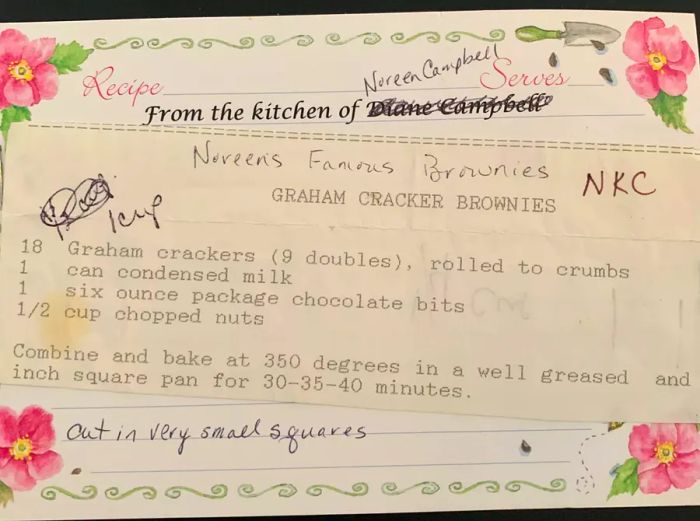 Recipe Noreen Campbell Serves
From the kitchen of Diane Campbell
Noreen's Famous Brownies NKC
GRAHAM CRACKER BROWNIES
1 cup
18 Graham crackers (9 doubles), rolled to crumbs
1 can condensed milk
1 six ounce package chocolate bits
1/2 cup chopped nuts
Combine and bake at 350 degrees in a well greased and
inch square pan for 30-35-40 minutes.
cut in very small squares